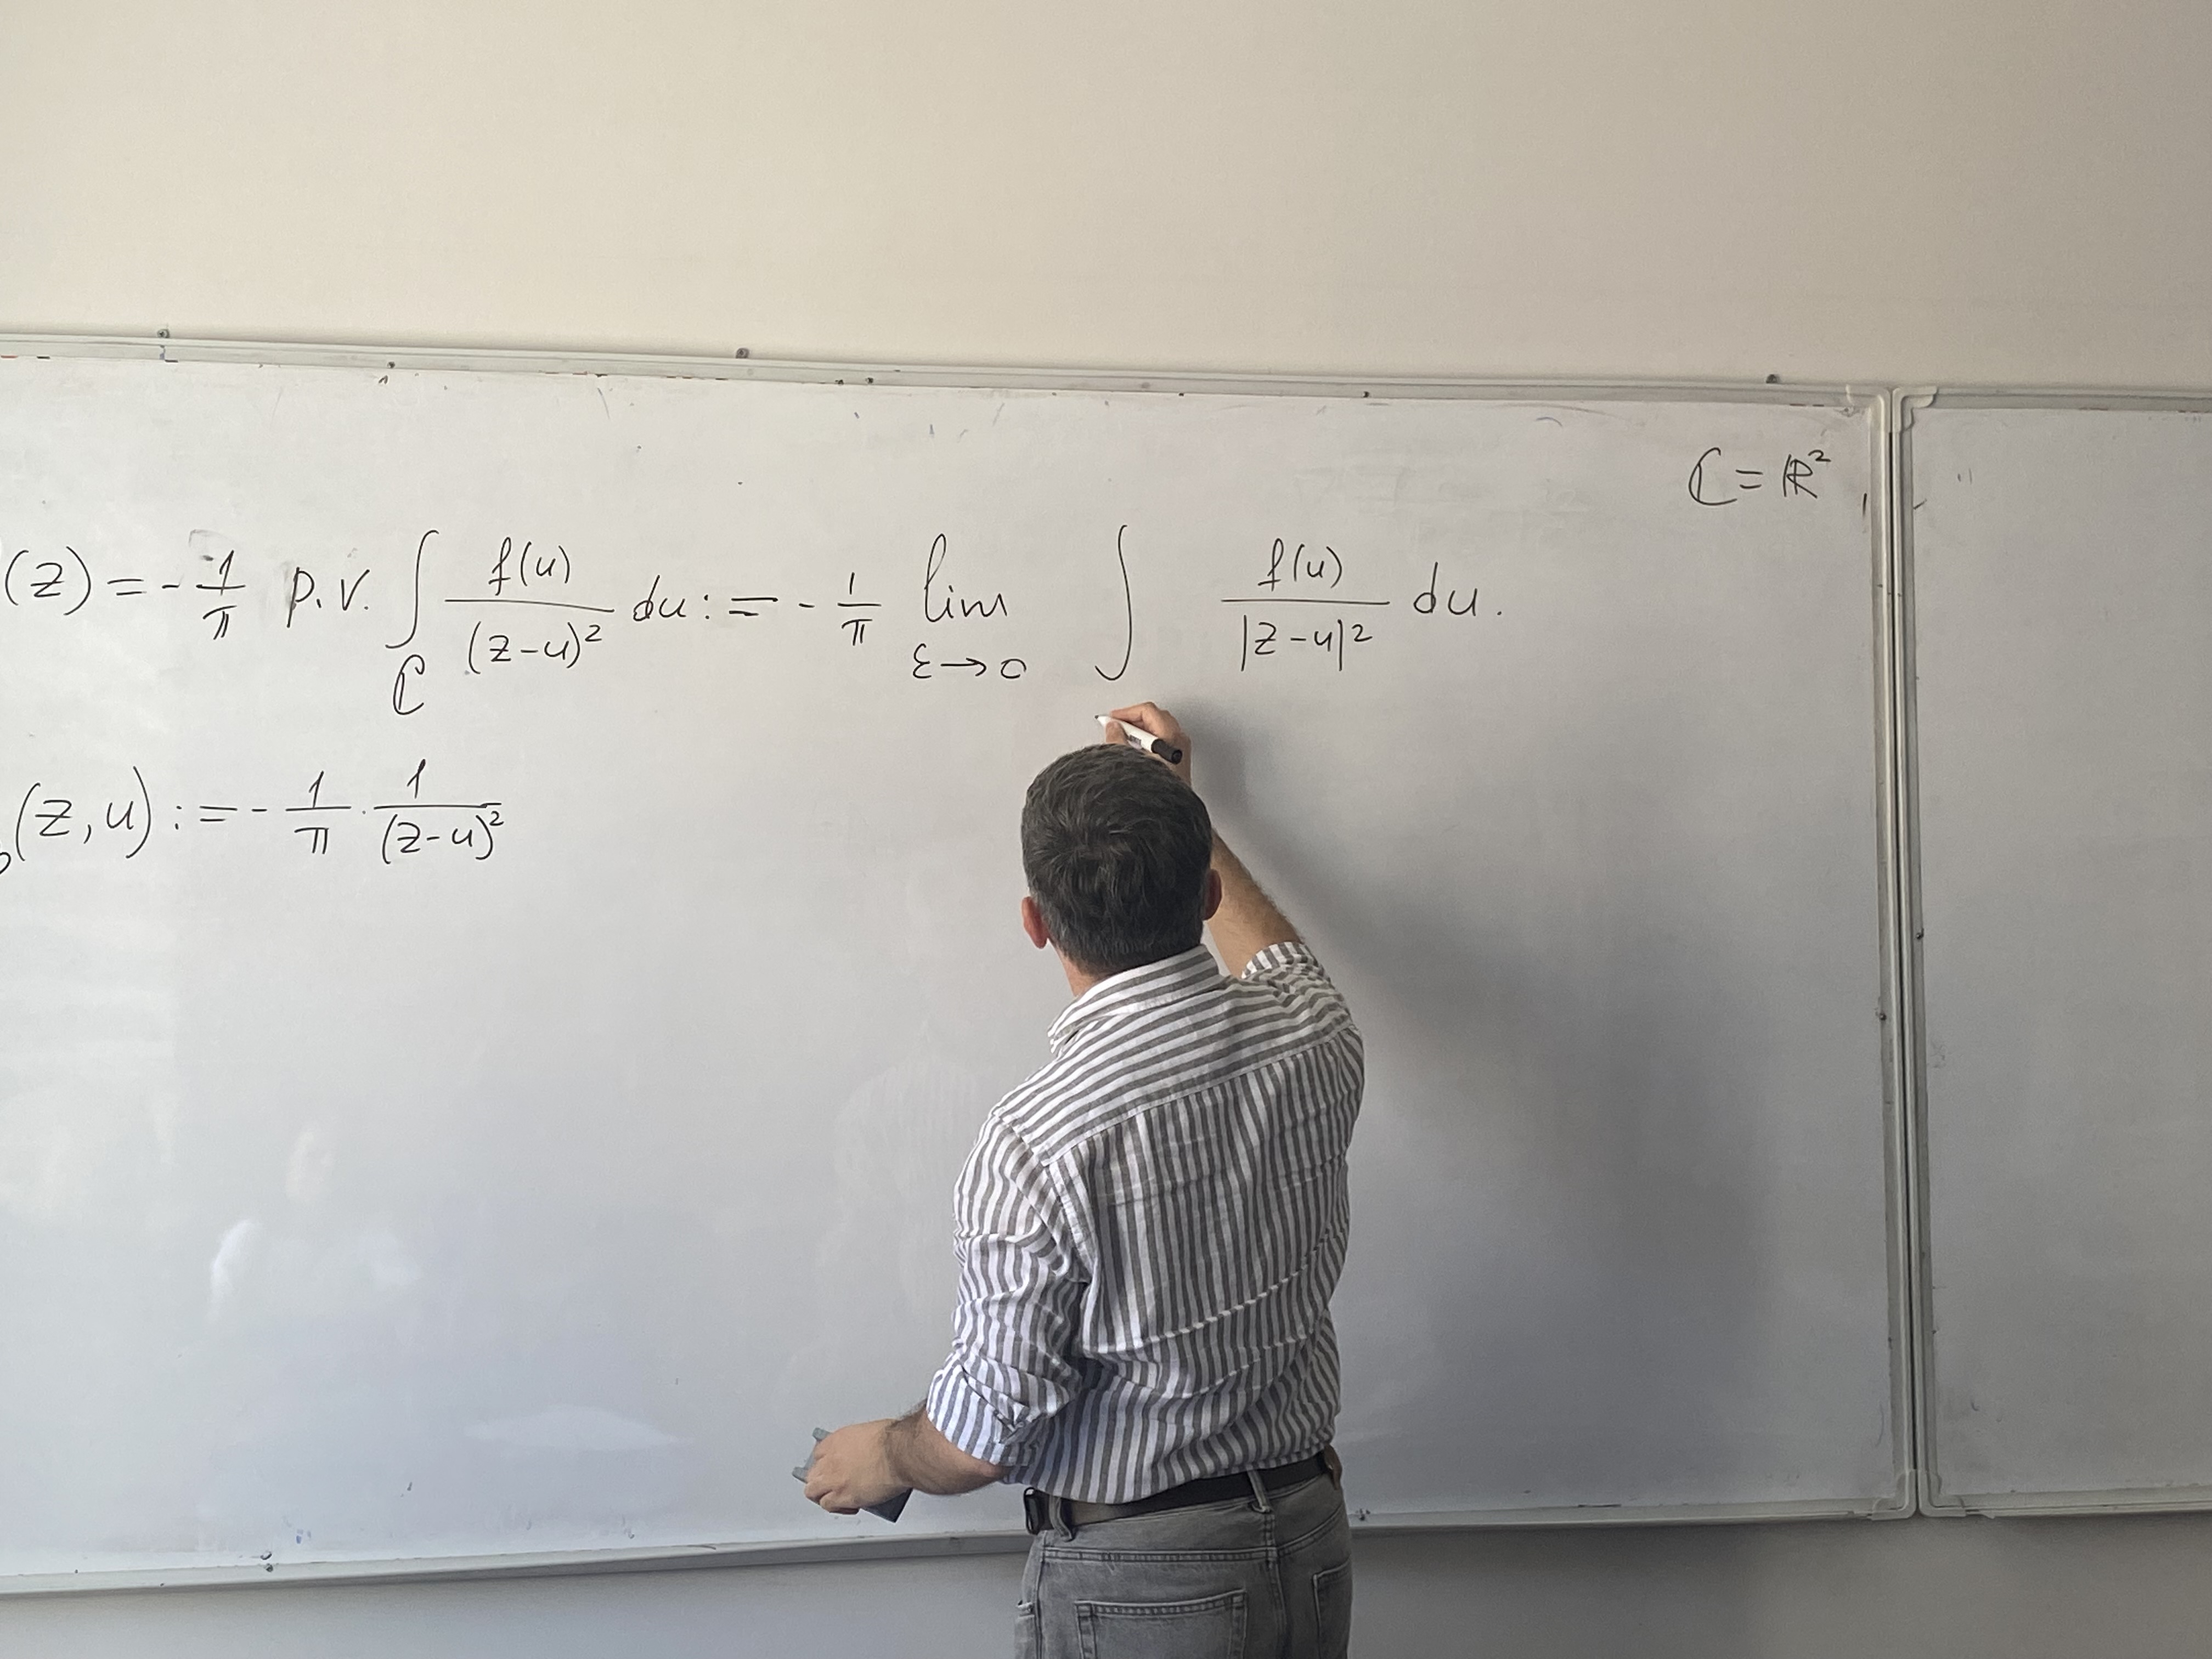 ℂ = ℝ²
(z) = - 1/π p.v. ∫_ℂ f(u)/(z-u)² du := - 1/π lim_{ε→0} ∫ f(u)/|z-u|² du.
(z,u) := - 1/π · 1/(z-u)²